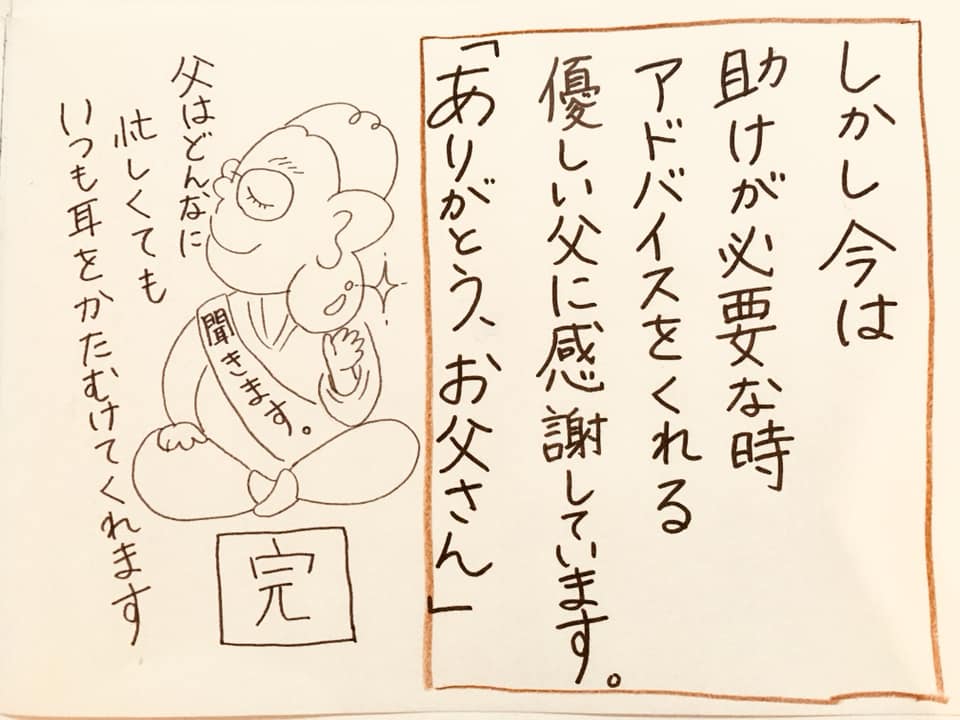 しかし今は
助けが必要な時
アドバイスをくれる
優しい父に感謝しています。
「ありがとう、お父さん」
父はどんなに
忙しくても
いつも耳をかたむけてくれます
聞きます。
完